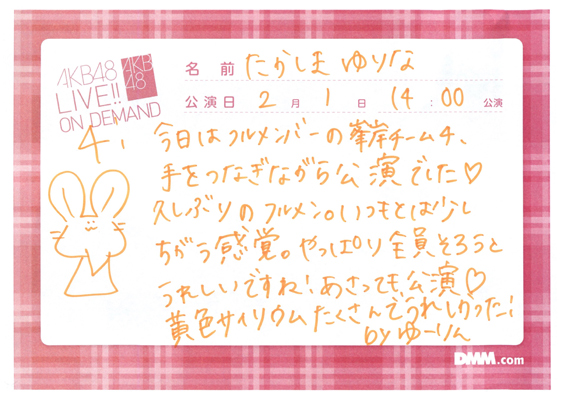 AKB48
LIVE!!
ON DEMAND
AKB
48
名前 たかしま ゆりな
公演日 2月1日 14:00 公演
今日はフルメンバーの峯岸チーム4、
手をつなぎながら公演でした♡
久しぶりのフルメン。いつもとは少し
ちがう感覚。やっぱり全員そろうと
うれしいですね!あさっても、公演♡
黄色サイリウムたくさんでうれしかった!
by ゆーりん
DMM.com